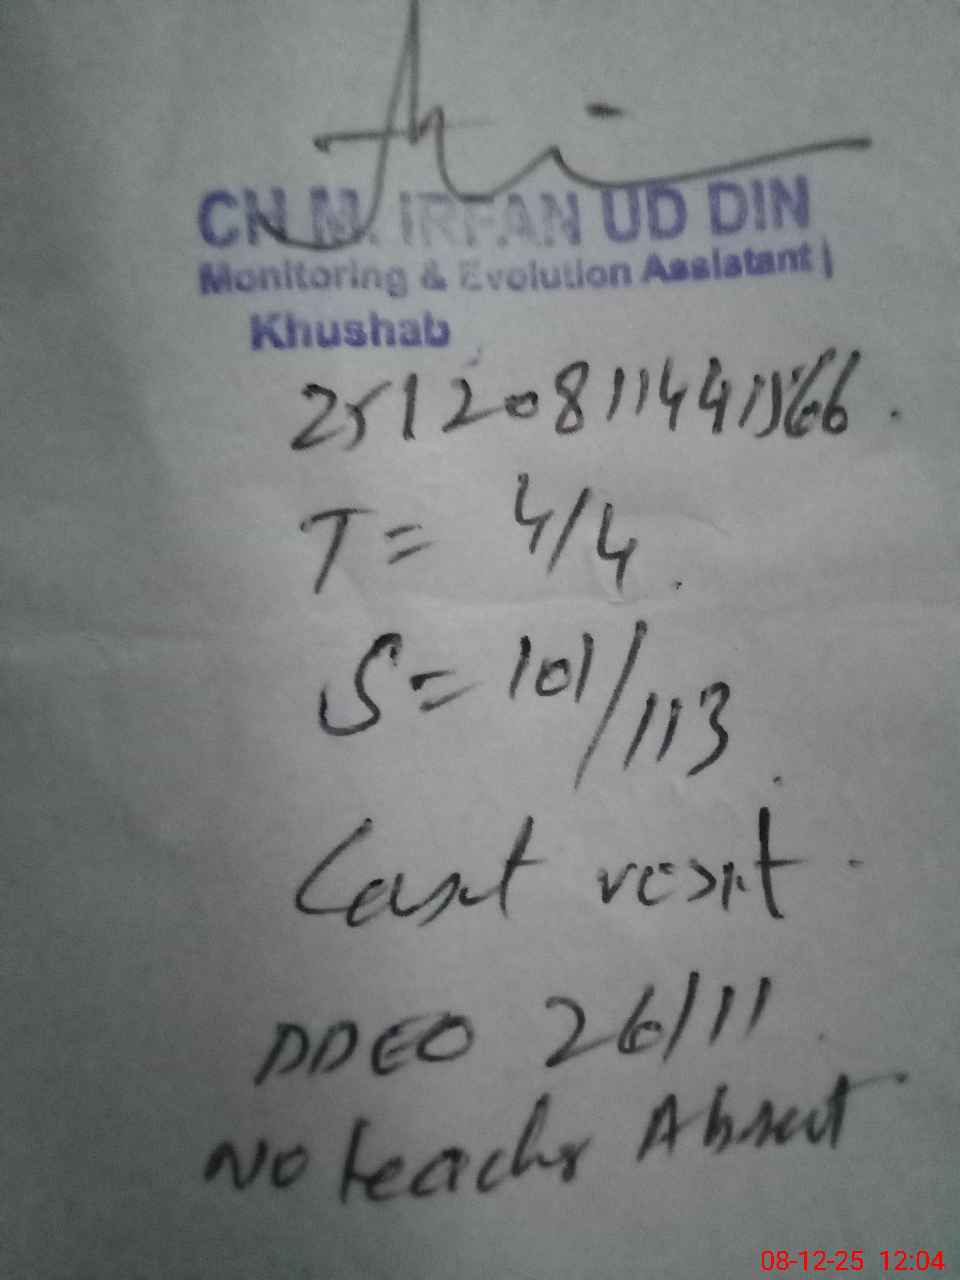 CN M. IRFAN UD DIN
Monitoring & Evolution Assistant
Khushab
T = 4/4.
S = 101/113.
Last visit.
DDEO 26/11
No teacher Absent
08-12-25 12:04